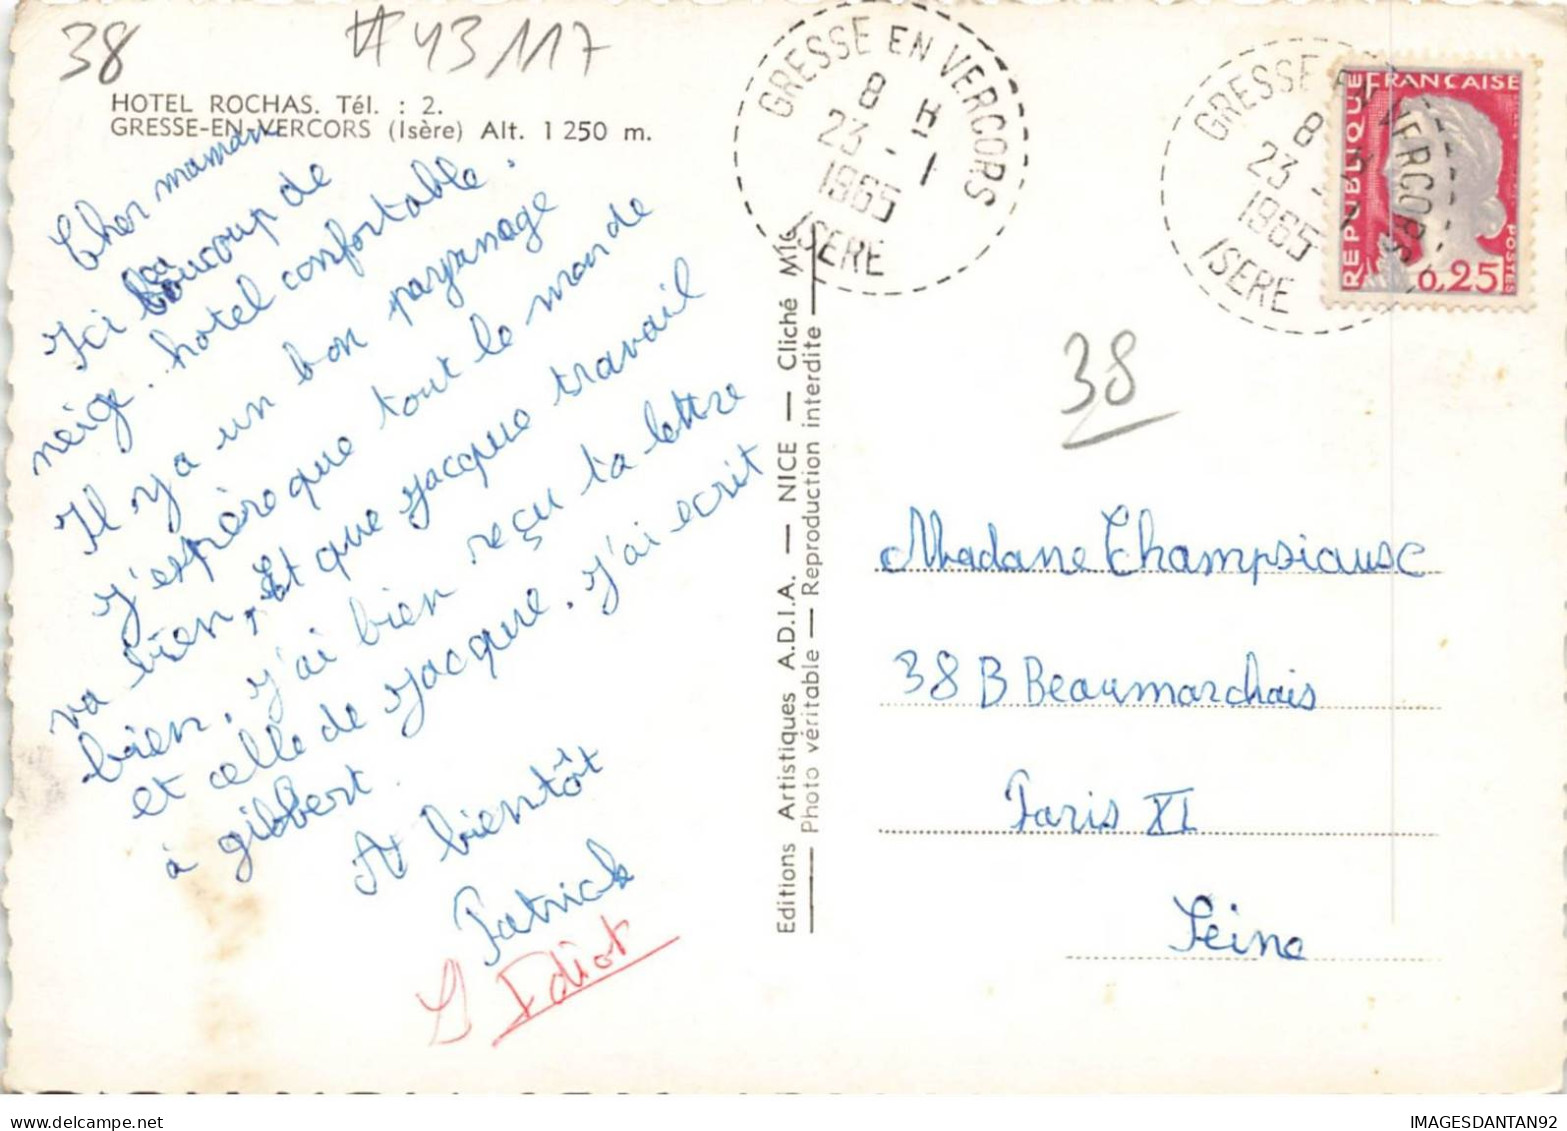 38
#43117
HOTEL ROCHAS. Tél. : 2.
GRESSE-EN-VERCORS (Isère) Alt. 1 250 m.
Cher maman
Ici beaucoup de
neige. hotel confortable.
Il y a un bon paysnage
J'espère que tout le monde
va bien, Et que Jacque travail
bien. J'ai bien reçu ta lettre
et celle de Jacque. J'ai ecrit
à gilbert.
A bientôt
Patrick
L Idiot
Editions Artistiques A.D.I.A. — NICE — Cliché M
Photo véritable — Reproduction interdite
GRESSE EN VERCORS
8 H
23 - 1
1965
ISERE
GRESSE EN VERCORS
8 H
23 - 1
1965
ISERE
REPUBLIQUE FRANÇAISE
POSTES
0,25
38
Madane Champsiausc
38 B Beaumarchais
Paris XI
Seine
IMAGESDANTAN92